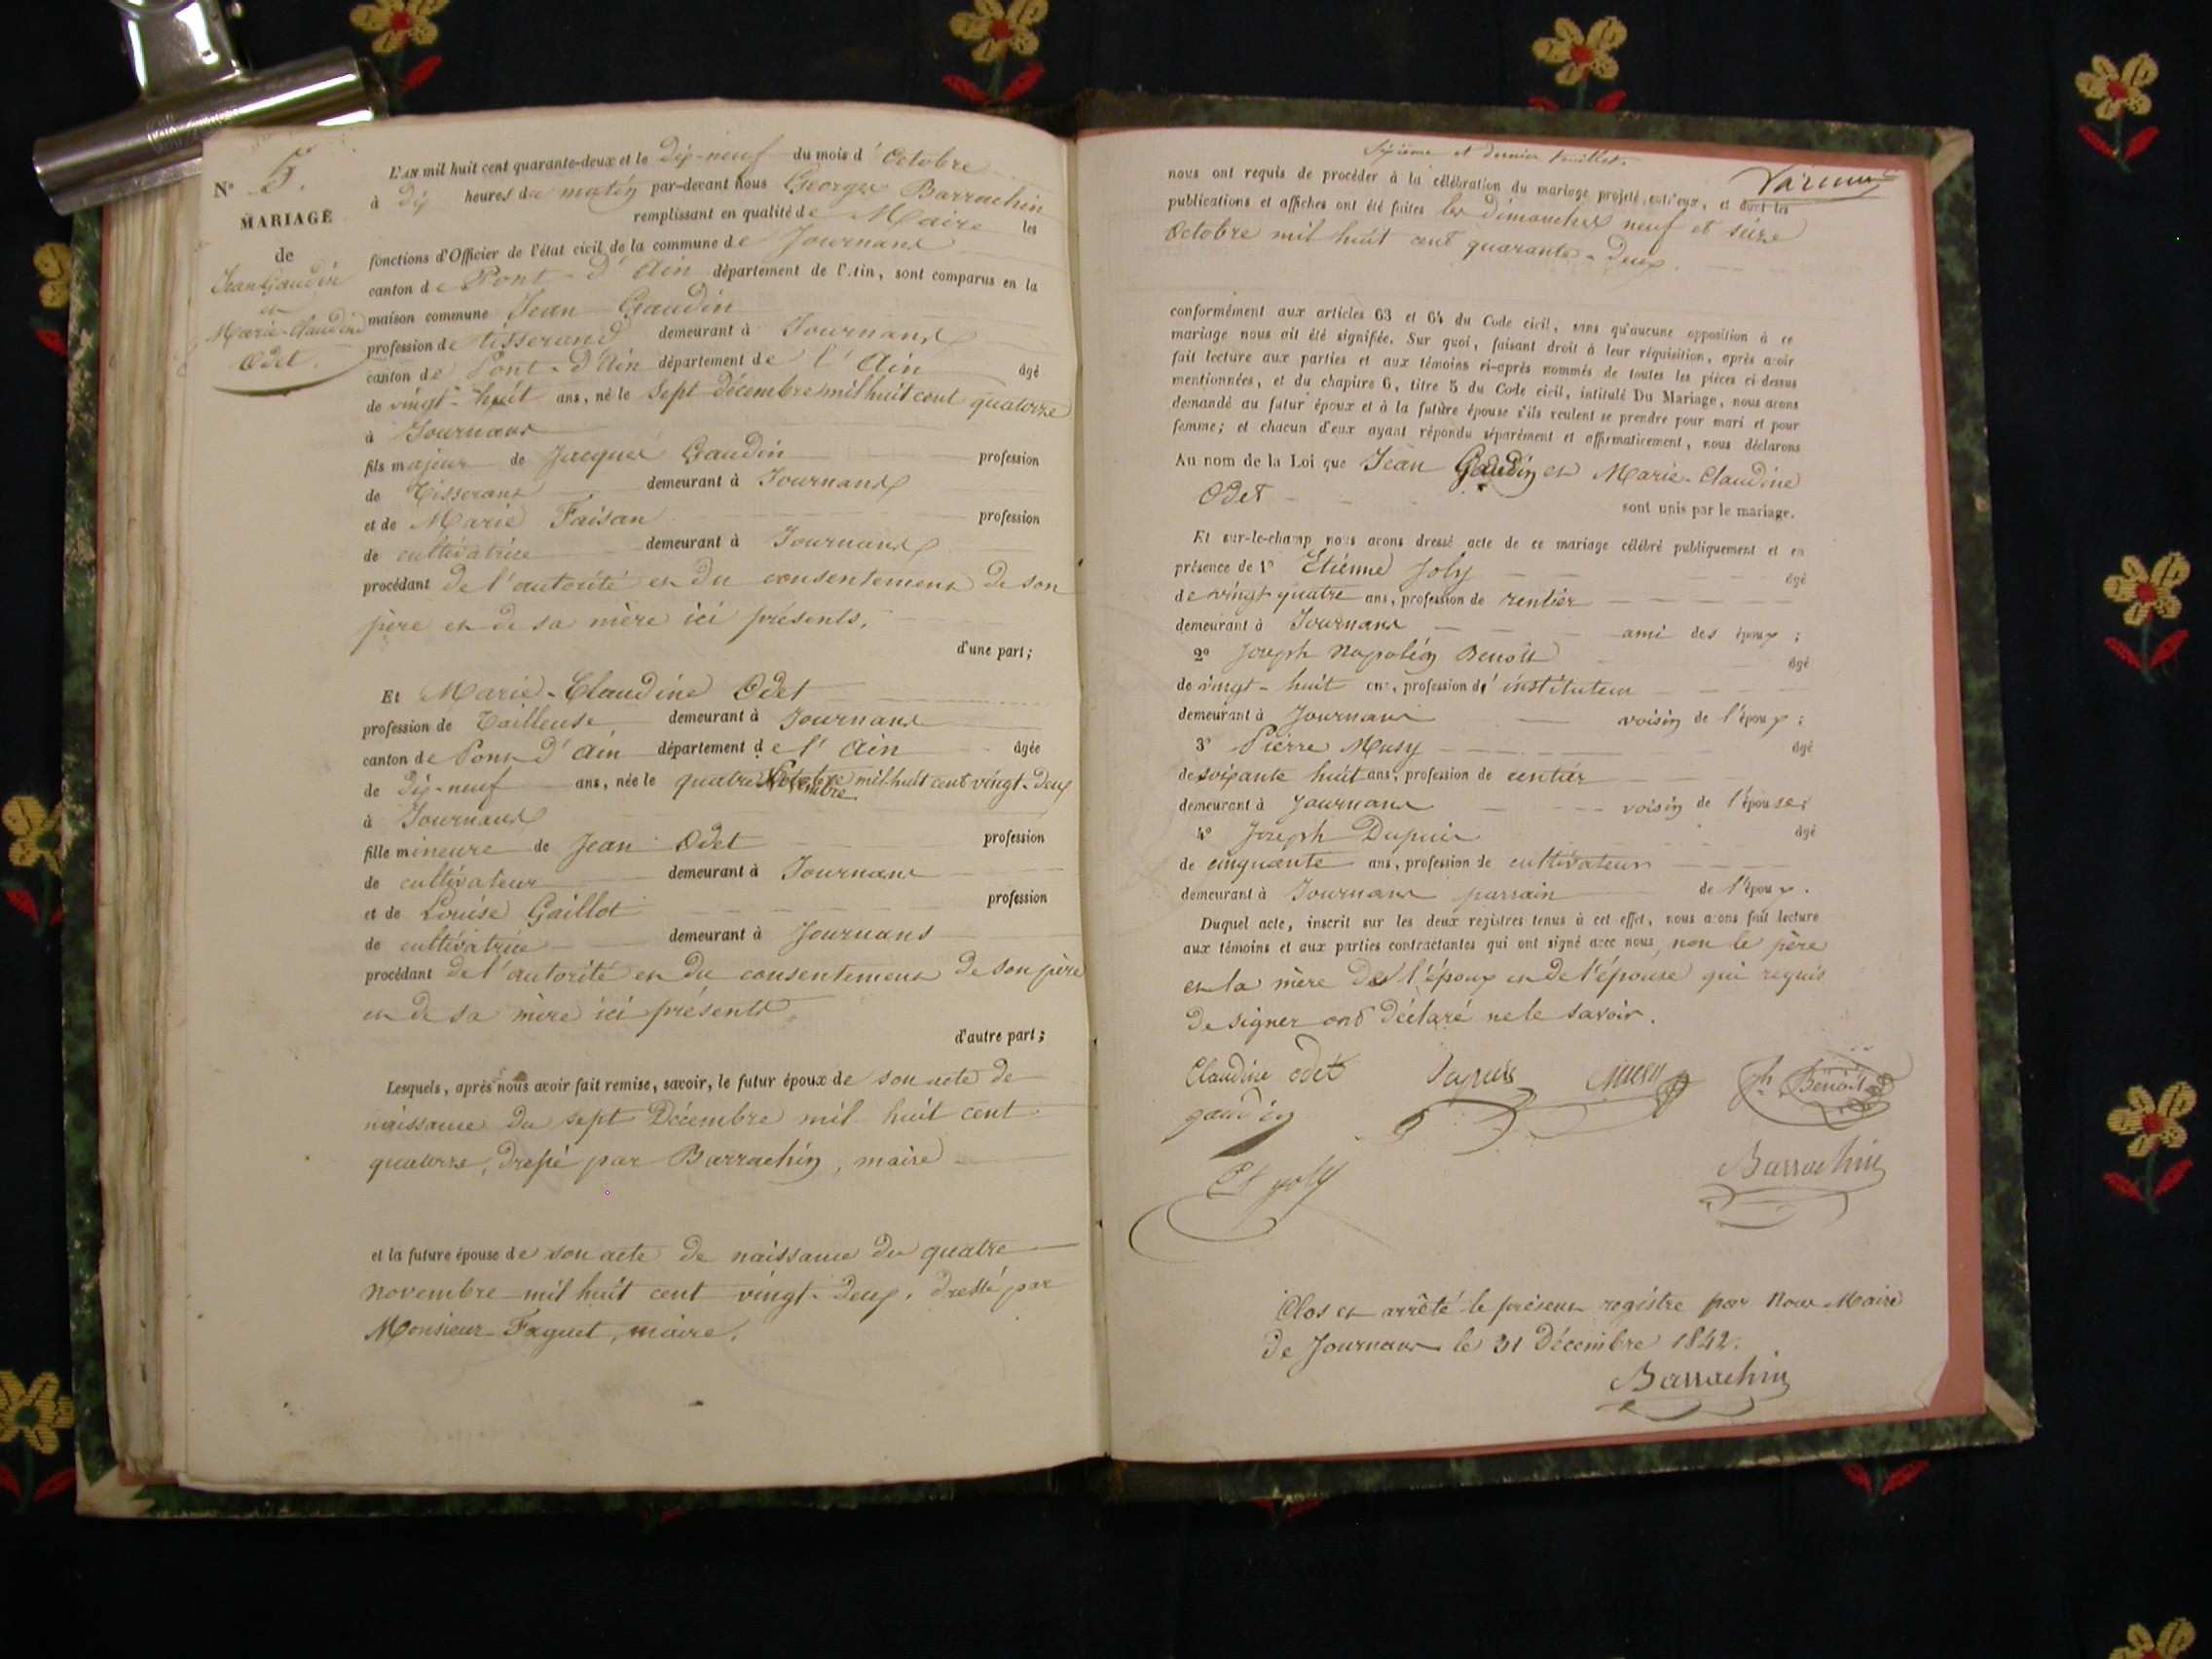 N° 5.
MARIAGE
de
Jean Gaudin
et
Marie-Claudine
Odet.
L'AN mil huit cent quarante-deux et le Dix-neuf du mois d'Octobre
à Dix heures du matin par-devant nous Georges Barrachin
remplissant en qualité de Maire les
fonctions d'Officier de l'état civil de la commune de Journans
canton de Pont-d'Ain département de l'Ain, sont comparus en la
maison commune Jean Gaudin
profession de tisserand demeurant à Journans
canton de Pont-d'Ain département de l'Ain âgé
de vingt-huit ans, né le Sept décembre mil huit cent quatorze
à Journans
fils majeur de Jacques Gaudin profession
de Tisserand demeurant à Journans
et de Marie Faisan profession
de cultivatrice demeurant à Journans
procédant de l'autorité et du consentement de son
père et de sa mère ici présents.
d'une part;
Et Marie-Claudine Odet
profession de Tailleuse demeurant à Journans
canton de Pont d'Ain département de l'Ain âgée
de Dix-neuf ans, née le quatre Novembre mil huit cent vingt-deux
à Journans
fille mineure de Jean Odet profession
de cultivateur demeurant à Journans
et de Louise Gaillot profession
de cultivatrice demeurant à Journans
procédant de l'autorité et du consentement de son père
et de sa mère ici présents.
d'autre part;
Lesquels, après nous avoir fait remise, savoir, le futur époux de son acte de
naissance du sept Décembre mil huit cent
quatorze, dressé par Barrachin, maire
et la future épouse de son acte de naissance du quatre
novembre mil huit cent vingt-deux, dressé par
Monsieur Faguet, maire.
Sixième et dernier feuillet.
nous ont requis de procéder à la célébration du mariage projeté entr'eux, et dont les
publications et affiches ont été faites les dimanches neuf et seize
Octobre mil huit cent quarante-deux.
conformément aux articles 63 et 64 du Code civil, sans qu'aucune opposition à ce
mariage nous ait été signifiée. Sur quoi, faisant droit à leur réquisition, après avoir
fait lecture aux parties et aux témoins ci-après nommés de toutes les pièces ci-dessus
mentionnées, et du chapitre 6, titre 5 du Code civil, intitulé Du Mariage, nous avons
demandé au futur époux et à la future épouse s'ils veulent se prendre pour mari et pour
femme; et chacun d'eux ayant répondu séparément et affirmativement, nous déclarons
Au nom de la Loi que Jean Gaudin et Marie-Claudine
Odet
sont unis par le mariage.
Et sur-le-champ nous avons dressé acte de ce mariage célébré publiquement et en
présence de 1° Etienne Joly âgé
de vingt-quatre ans, profession de rentier
demeurant à Journans ami des époux;
2° Joseph Napoléon Benoit âgé
de vingt-huit ans, profession d'instituteur
demeurant à Journans voisin de l'époux;
3° Pierre Musy âgé
de soixante huit ans, profession de rentier
demeurant à Journans voisin de l'épouse;
4° Joseph Dupuis âgé
de cinquante ans, profession de cultivateur
demeurant à Journans parrain de l'époux.
Duquel acte, inscrit sur les deux registres tenus à cet effet, nous avons fait lecture
aux témoins et aux parties contractantes qui ont signé avec nous, non le père
et la mère de l'époux et de l'épouse qui requis
de signer ont déclaré ne le savoir.
Claudine odet Dupuis Musy Jh Benoit
gaudin
Et joly Barrachin
Clos et arrêté le présent registre par Nous Maire
de Journans le 31 Décembre 1842.
Barrachin